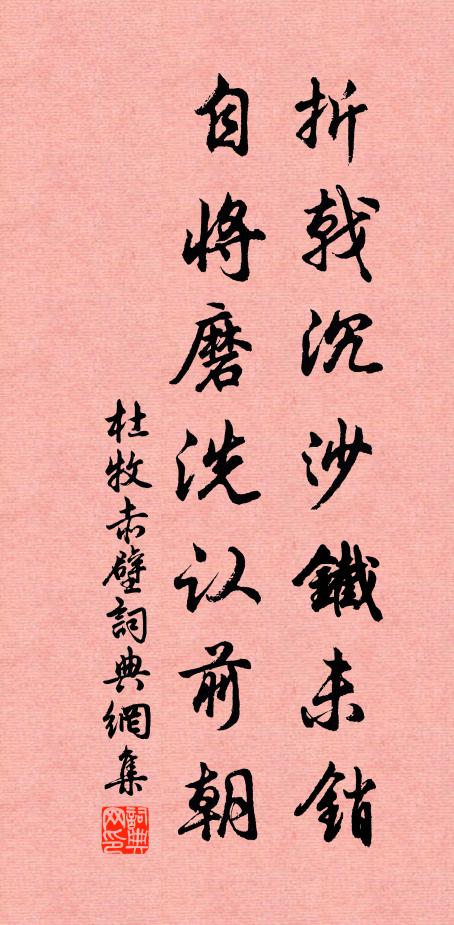 折戟沉沙鐵未銷
自將磨洗认前朝
杜牧赤壁詞典網集
詞典网印